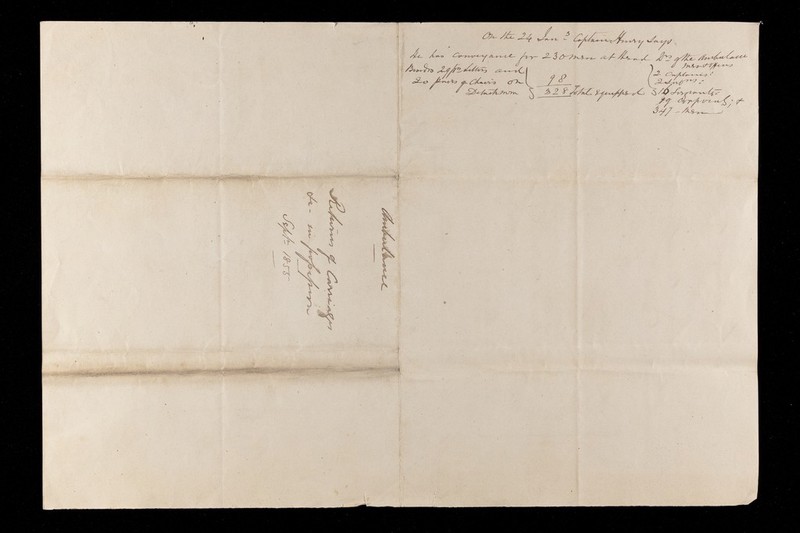 On the 24 Jany. Captain Henry says.
He has conveyance for 230 men at Head Qrs of the Ambulance
Besides 29 pr. litters and
20 pairs of Chairs on
Detachment
98
328 total equipped
2 Captains
2
16 Sergeants
19 Corporals; &
347 - Men
Ambulance
Returns of Carriages
&c - in possession
Septr. 1855